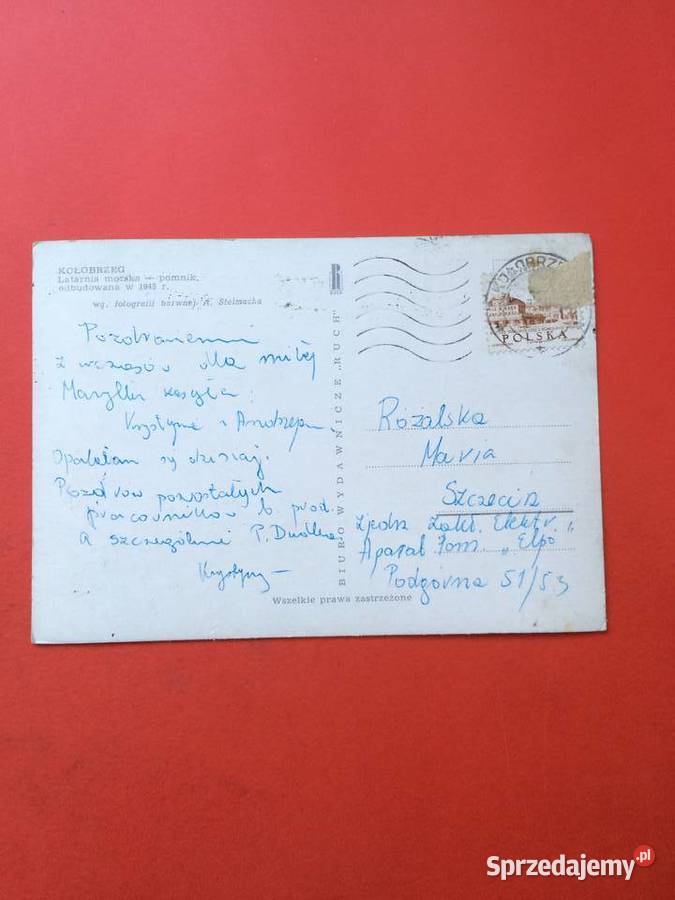 KOŁOBRZEG
Latarnia morska — pomnik,
odbudowana w 1945 r.
wg. fotografii barwnej A. Stelmacha
Pozdrowienia
z wczasów dla miłej
Marylki
Krystyna i Andrzej
Opalałam się dzisiaj.
Pozdrów pozostałych
pracowników b. prod.
a szczególnie P.
Krystyna
BIURO WYDAWNICZE „RUCH”
Wszelkie prawa zastrzeżone
KOŁOBRZE
POLSKA
Różalska
Maria
Szczecin
Zjedn. Zakł. Elektr.
Aparat. Pom. „Elpo”
Podgórna 51/53
Sprzedajemy.pl